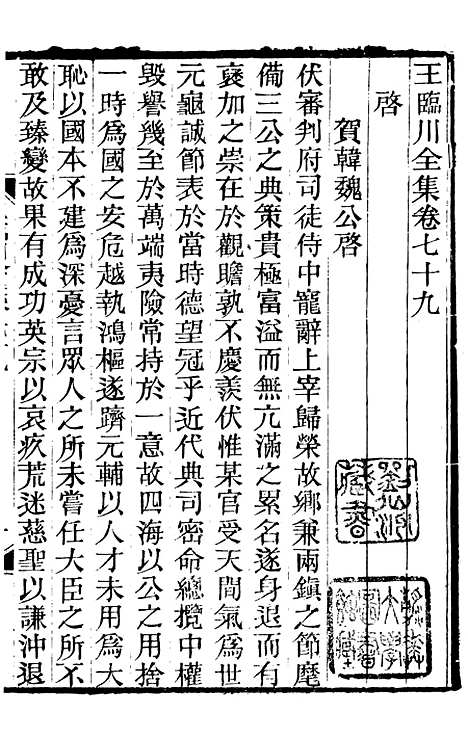 王臨川全集卷七十九
啓
賀韓魏公啓
伏審判府司徒侍中寵辭上宰歸榮故鄉兼兩鎮之節麾
備三公之典策貴極富溢而無亢滿之累名遂身退而有
襃加之崇在於觀瞻孰不慶羨伏惟某官受天間氣爲世
元龜誠節表於當時德望冠乎近代典司密命總攬中權
毀譽幾至於萬端夷險常持於一意故四海以公之用捨
一時爲國之安危越執鴻樞遂躋元輔以人才未用爲大
恥以國本不建爲深憂言眾人之所未嘗任大臣之所不
敢及臻變故果有成功英宗以哀疚荒迷慈聖以謙沖退